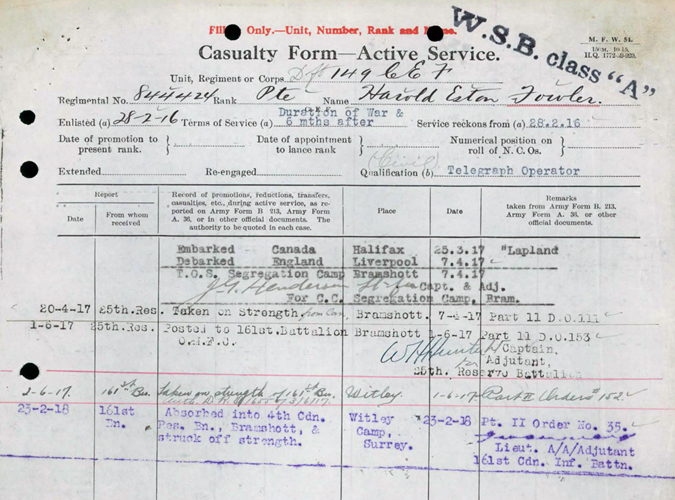 Fill Only.—Unit, Number, Rank and
W.S.B. class "A"
M. F. W. 54.
Casualty Form—Active Service.
Unit, Regiment or Corps Dft 149 C E F
Regimental No. 844424 Rank Pte Name Harold Eston Fowler.
Enlisted (a) 28-2-16 Terms of Service (a) Duration of War & 6 mths after Service reckons from (a) 28.2.16
Date of promotion to present rank. Date of appointment to lance rank Numerical position on roll of N. C. Os.
(Civil)
Extended Re-engaged Qualification (b) Telegraph Operator
Report
Date
From whom received
Record of promotions, reductions, transfers, casualties, etc., during active service, as reported on Army Form B. 213, Army Form A. 36, or in other official documents. The authority to be quoted in each case.
Place
Date
Remarks
taken from Army Form B. 213, Army Form A. 36, or other official documents.
Embarked Canada Halifax 25.3.17 "Lapland
Debarked England Liverpool 7.4.17
T.O.S. Segregation Camp Bramshott 7.4.17
Capt. & Adj.
For C.C. Segregation Camp, Bram.
20-4-17 25th.Res. Taken on Strength from Can. Bramshott. 7-4-17 Part 11 D.O.111
1-6-17 25th.Res. Posted to 161st.Battalion Bramshott 1-6-17 Part 11 D.O.153
O.M.F.C.
Captain,
for Adjutant,
25th. Reserve Battalion
2-6-17. 161st Bn. taken on strength of 161st Bn. Witley 1-6-17 Part II Orders # 152
23-2-18 161st Bn. Absorbed into 4th Cdn. Res. Bn., Bramshott, & struck off strength. Witley Camp, Surrey. 23-2-18 Pt. II Order No. 35.
Lieut. A/A/Adjutant
161st Cdn. Inf. Battn.